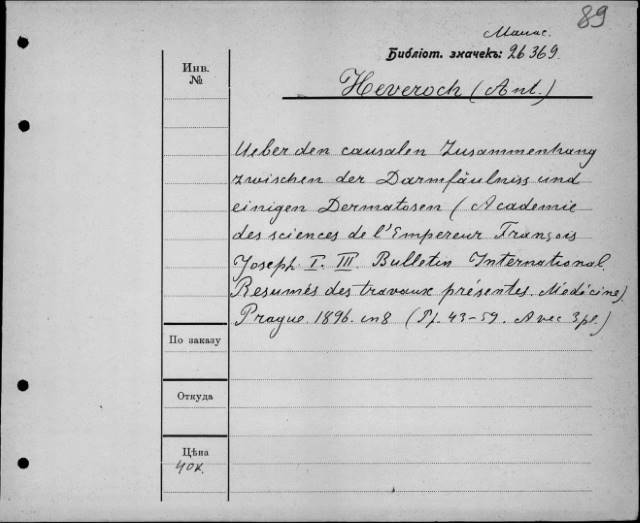 89
Библіот. значекъ: 26369.
Инв.
№
Heveroch (Ant.)
Ueber den causalen Zusammenhang
zwischen der Darmfäulniss und
einigen Dermatosen (Academie
des sciences de l'Empereur François
Joseph I. III. Bulletin International.
Resumés des travaux présentes. Medécine)
Prague. 1896. in 8 (Pp. 43-59. Avec 3 pl.)
По заказу
Откуда
Цѣна
40к.